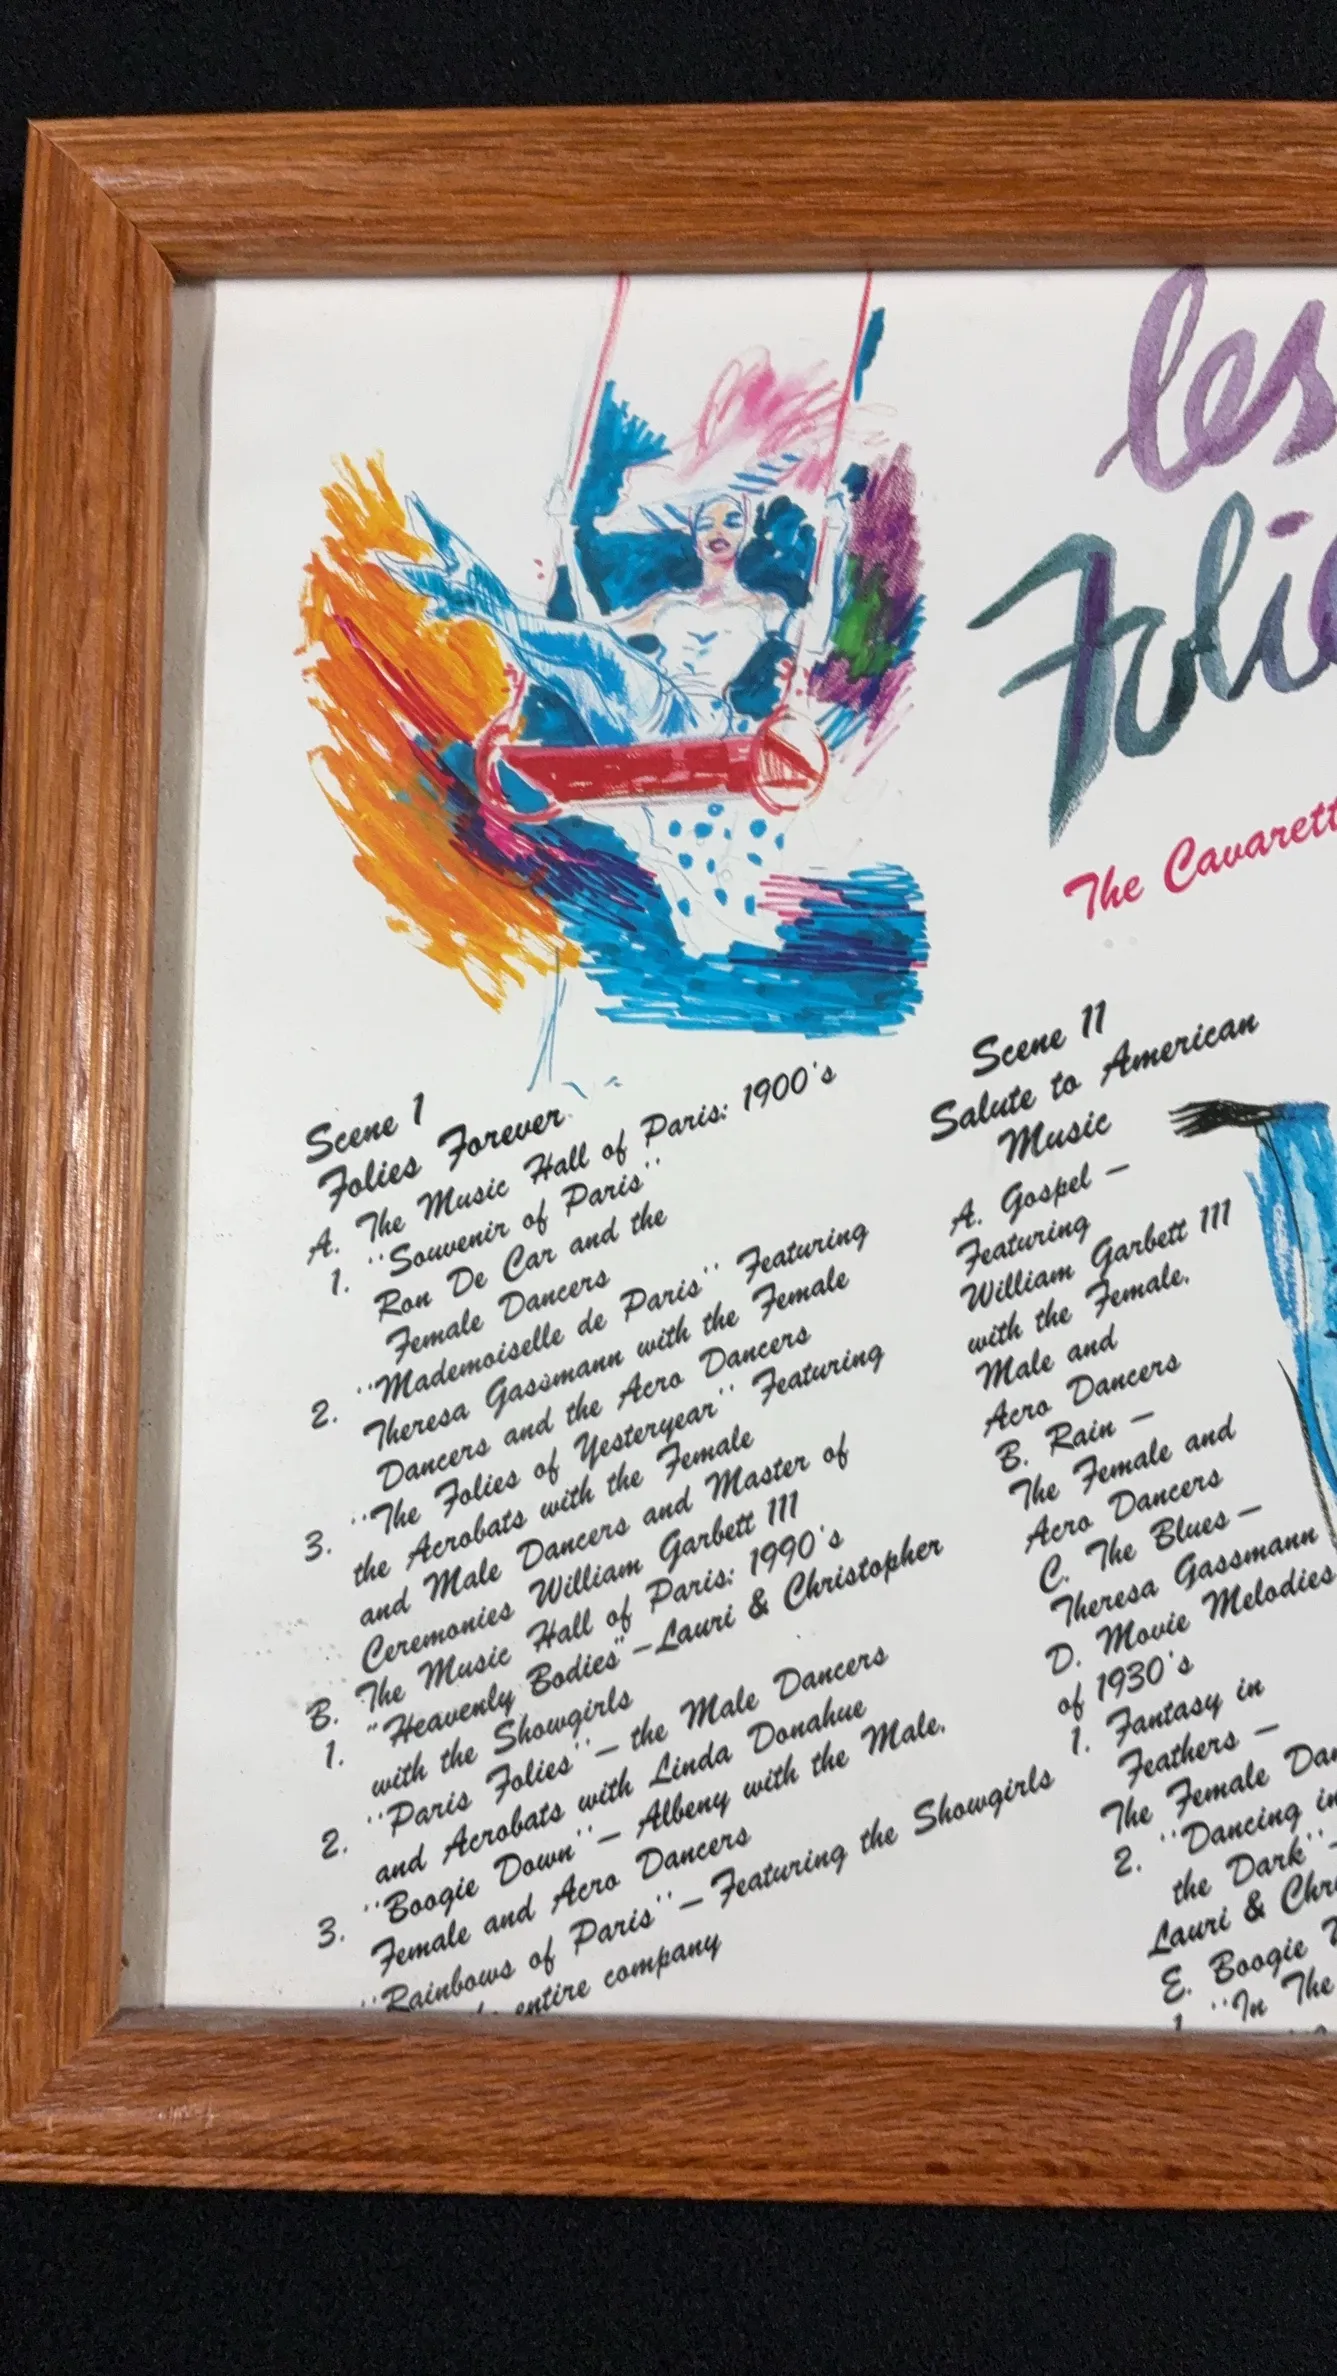 les
Folie
The Cavarett
Scene 1
Folies Forever
A. The Music Hall of Paris: 1900's
1. "Souvenir of Paris"
Ron De Car and the
Female Dancers
2. "Mademoiselle de Paris" Featuring
Theresa Gassmann with the Female
Dancers and the Acro Dancers
3. "The Folies of Yesteryear" Featuring
the Acrobats with the Female
and Male Dancers and Master of
Ceremonies William Garbett 111
B. The Music Hall of Paris: 1990's
1. "Heavenly Bodies" – Lauri & Christopher
with the Showgirls
2. "Paris Folies" – the Male Dancers
and Acrobats with Linda Donahue
3. "Boogie Down" – Albeny with the Male,
Female and Acro Dancers
"Rainbows of Paris" – Featuring the Showgirls
entire company
Scene 11
Salute to American
Music
A. Gospel –
Featuring
William Garbett 111
with the Female,
Male and
Acro Dancers
B. Rain –
The Female and
Acro Dancers
C. The Blues –
Theresa Gassmann
D. Movie Melodies
of 1930's
1. Fantasy in
Feathers –
The Female Dan
2. "Dancing in
the Dark" –
Lauri & Chri
E. Boogie
1. "In The